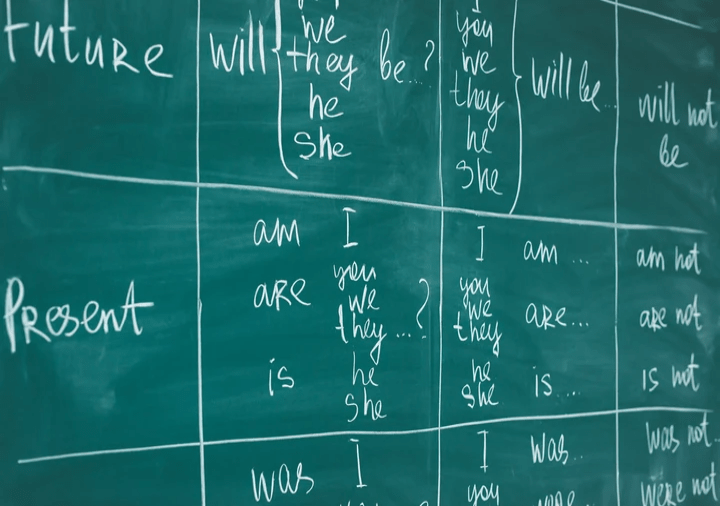 Future
will
we
they
he
she
be...?
you
we
they
he
she
will be...
will not
be
Present
am I
are
you
we
they...?
is
he
she
I am ...
you
we
they
are...
he
she
is....
am not
are not
is not
was I
I was..
you
was not
were not